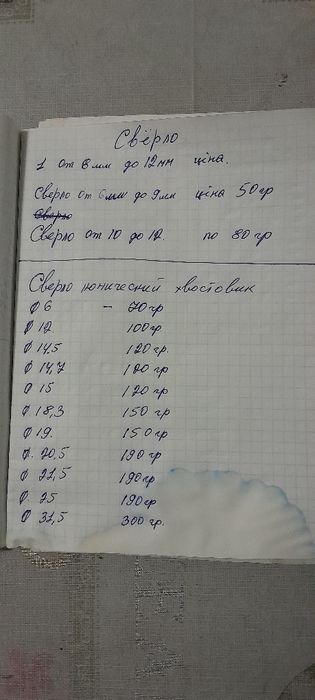 Свёрло
1 от 6мм до 12мм ціна.
Сверло от 6мм до 9мм ціна 50гр
Сверло
Сверло от 10 до 12. по 80 гр
Сверло конический хвостовик
Ф 6 - 70гр
Ф 12 100гр
Ф 14,5 120гр.
Ф 14,7 120гр
Ф 15 120гр
Ф 18,3 150гр
Ф 19. 150гр
Ф. 20,5 190гр
Ф 21,5 190гр
Ф. 25 190гр
Ф 31,5 300гр.